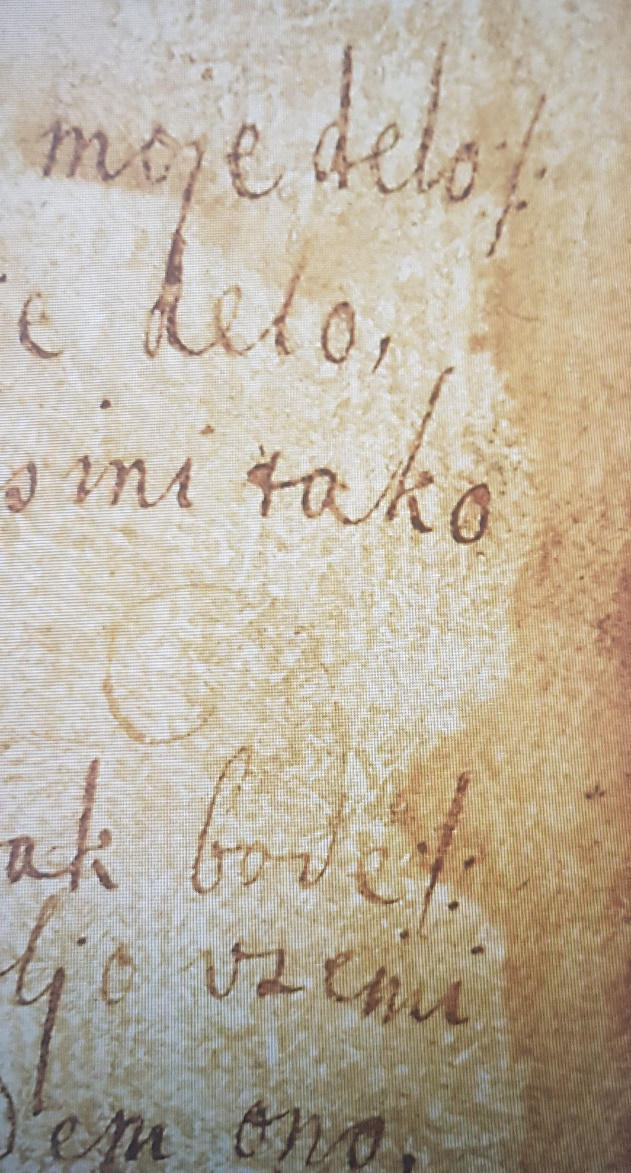 moje delo ·/·
e delo,
sini tako
ak bode ·/·
ljo vzemi
dem ono,